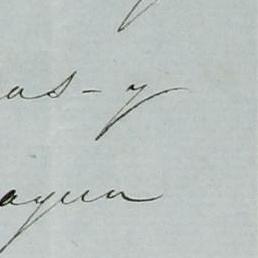 as - y
agua